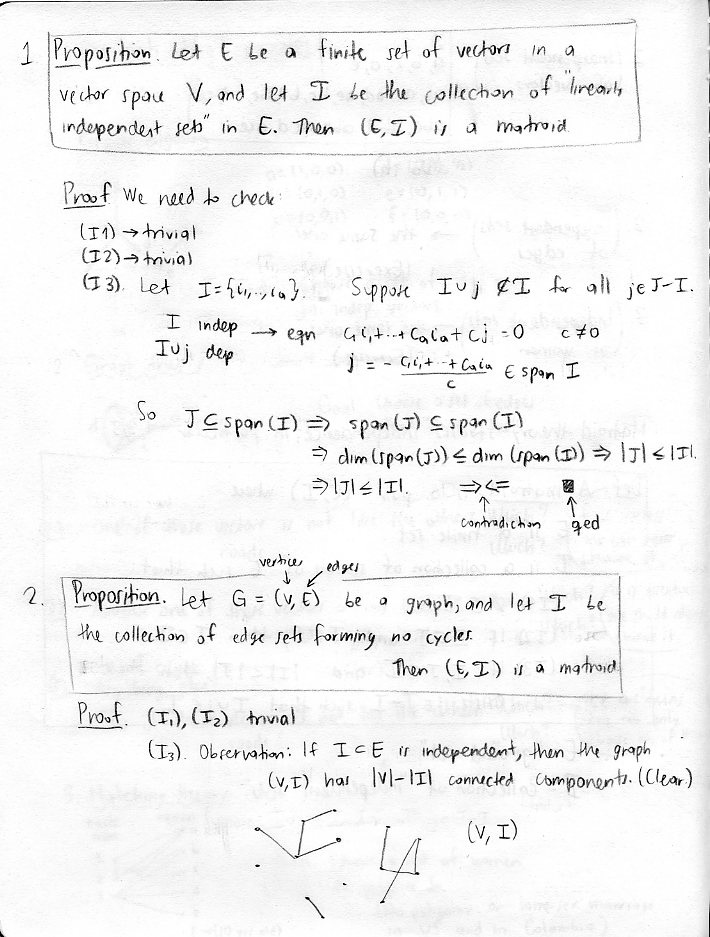 1 Proposition. Let E be a finite set of vectors in a
vector space V, and let I be the collection of "linearly
independent sets" in E. Then (E, I) is a matroid.
Proof We need to check:
(I1) → trivial
(I2) → trivial
(I3). Let I = {i₁,..,iₐ}. Suppose I∪j ∉ I for all j∈J-I.
I indep → eqn c₁i₁+...+cₐiₐ+cj = 0 c≠0
I∪j dep
j = - c₁i₁+...+cₐiₐ / c ∈ span I
So J ⊆ span(I) ⇒ span(J) ⊆ span(I)
⇒ dim(span(J)) ≤ dim(span(I)) ⇒ |J| ≤ |I|.
⇒ |J| ≤ |I|. ⇒⇐ ■
↑ ↑
contradiction qed
vertices edges
2. Proposition. Let G = (V, E) be a graph, and let I be
the collection of edge sets forming no cycles.
Then (E, I) is a matroid.
Proof. (I₁), (I₂) trivial
(I₃). Observation: If I ⊂ E is independent, then the graph
(V,I) has |V|-|I| connected components. (Clear)
(V, I)